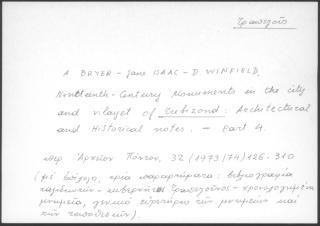 Τραπεζοῦς
A. BRYER – Jane ISAAC – D. WINFIELD,
Nineteenth-Century Monuments in the city
and vilayet of Trebizond: Architectural
and Historical notes. – Part 4.
περ. Ἀρχεῖον Πόντου, 32 (1973/74) 126-310
(μέ εἰσαγωγή, τρία παραρτήματα: βιβλιογραφία
Τραπεζοῦντος – χρονολογημένα
μνημεῖα, γενικό εὑρετήριο τῶν μνημείων καί
τῶν τοποθεσιῶν)